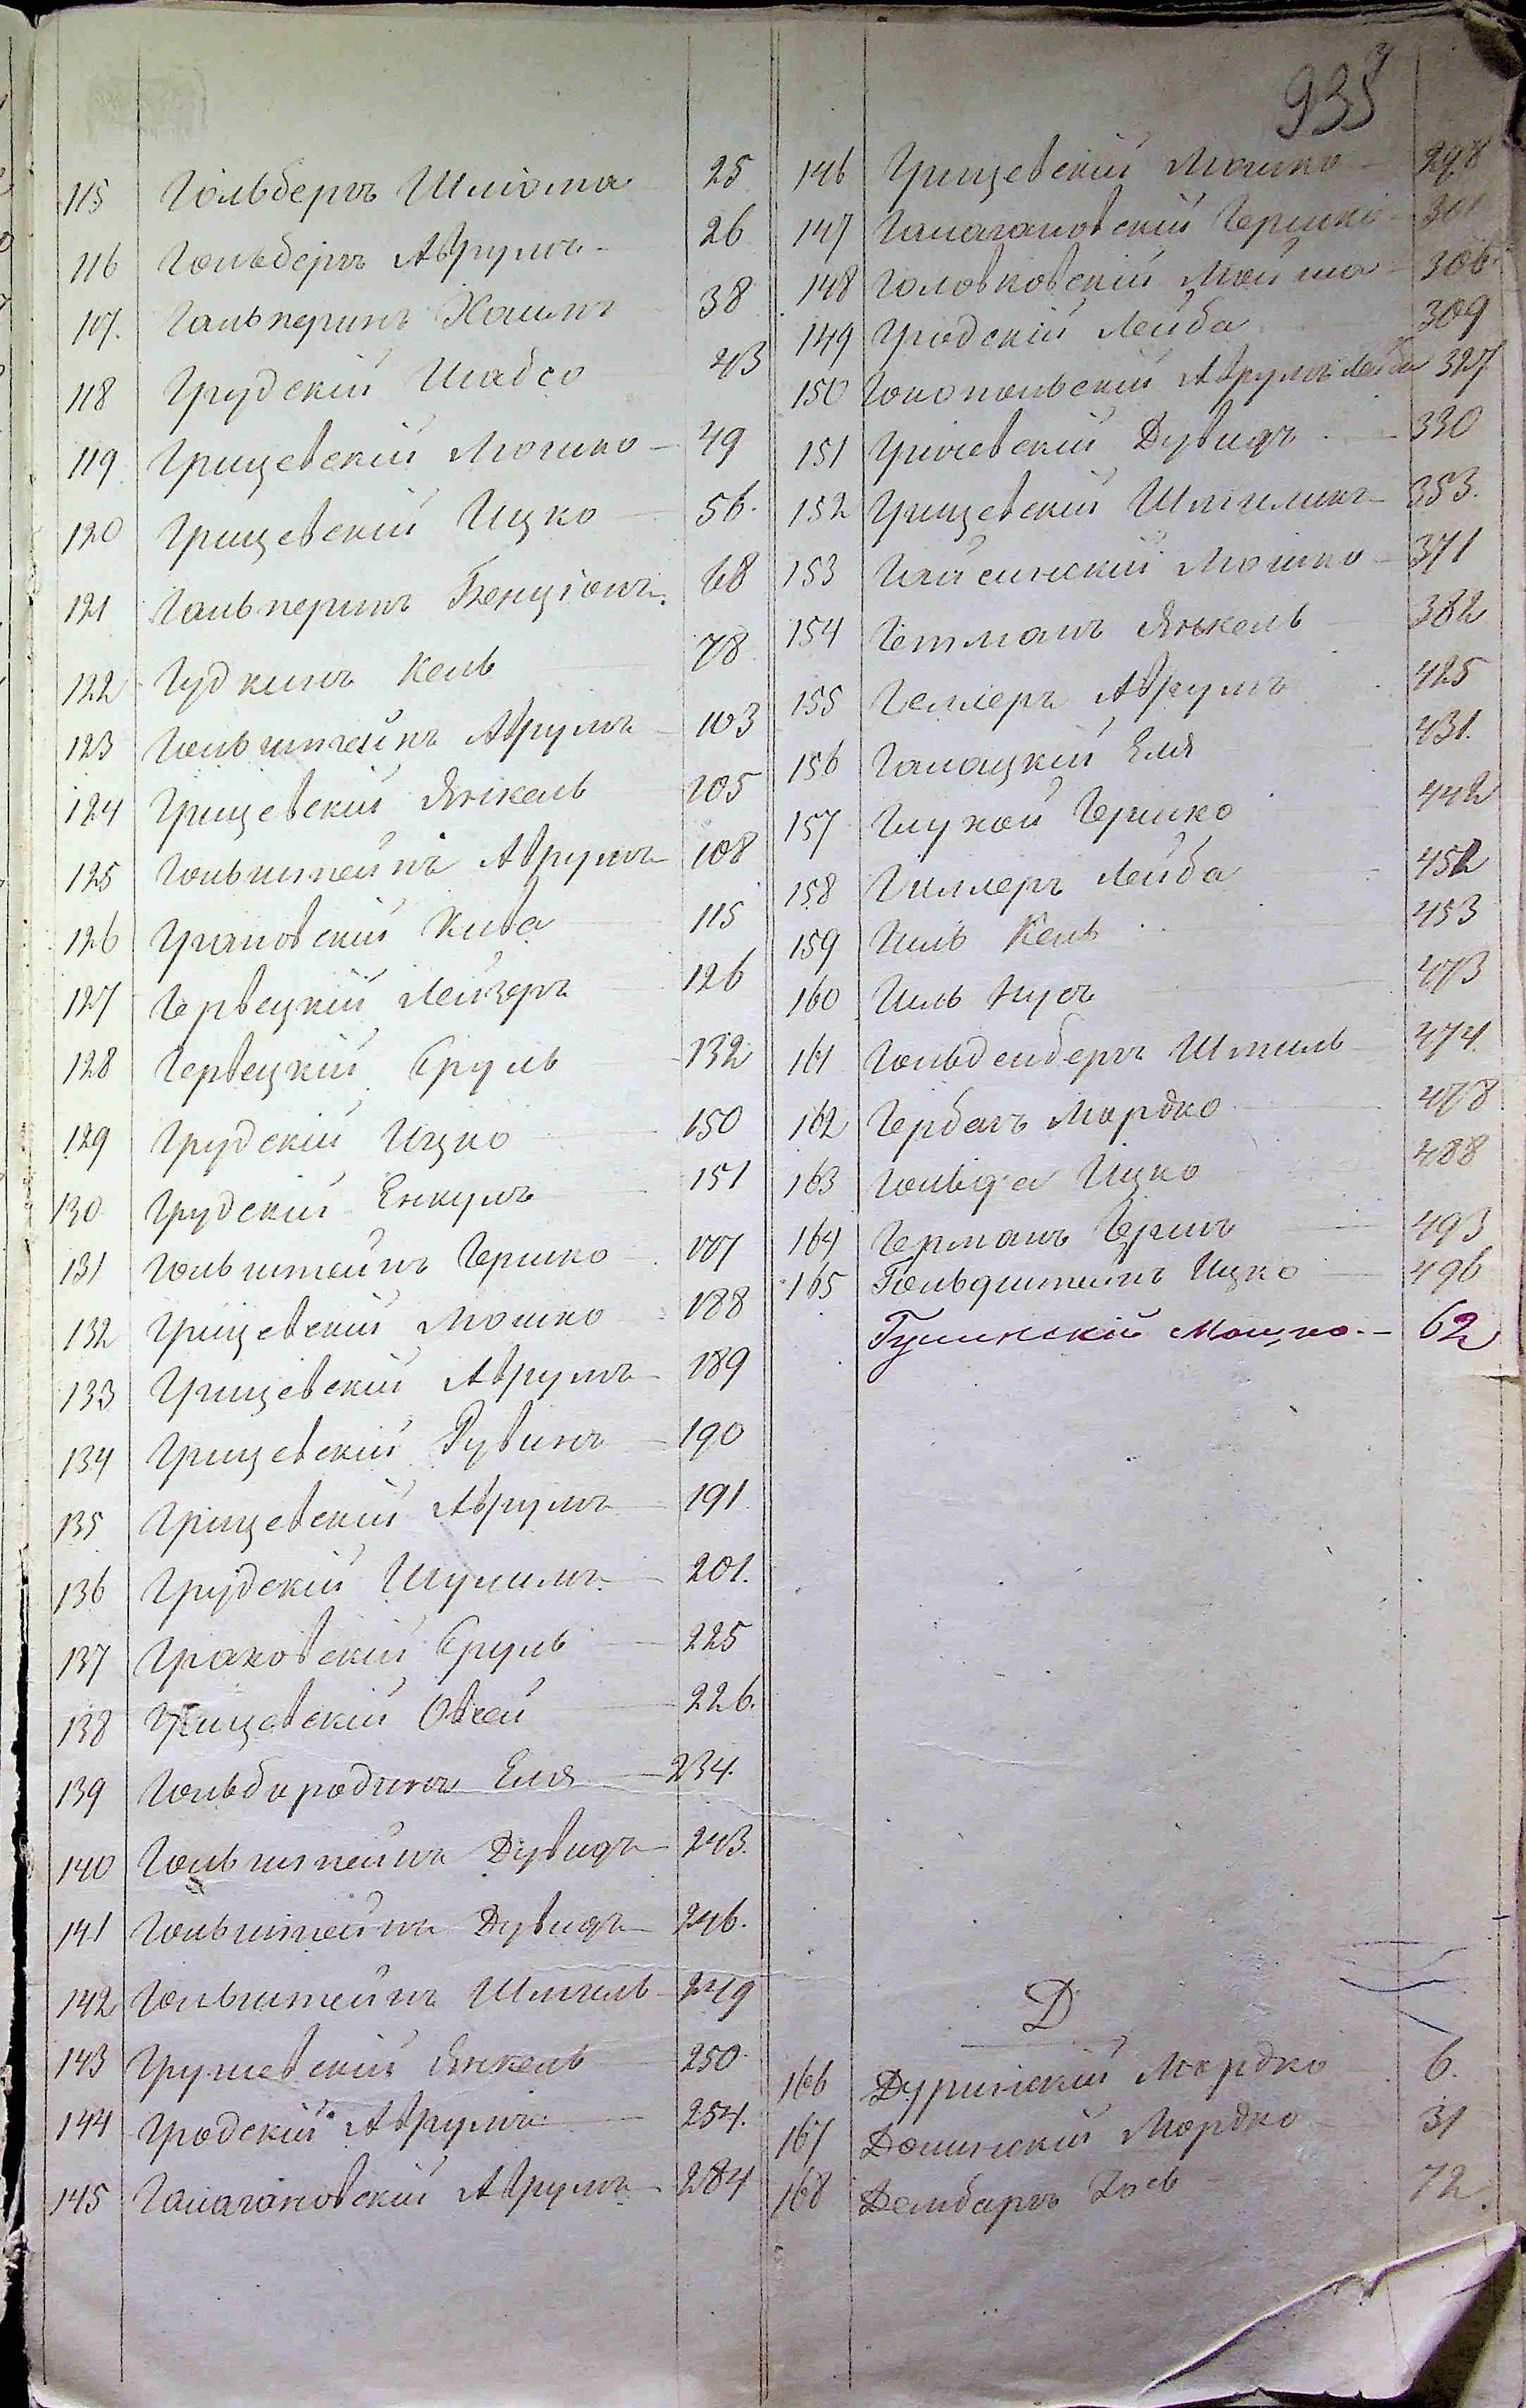 933
115 Гольдбергъ Шліома 25
116 Гольдбергъ Аврумъ 26
117. Гальперинъ Хаимъ 38
118 Грудскій Шабсо 43
119 Грищевскій Мошко 49
120 Грищевскій Ицко 56.
121 Гальперинъ Бенціонъ 68
122 Гудкинъ Кель 78
123 Гольштейнъ Аврумъ 103
124 Грищевскій Янкель 105
125 Гольштейнъ Аврумъ 108
126 Грановскій Кива 115
127 Гервецкій Лейзеръ 126
128 Гервецкій Сруль 132
129 Грудскій Ицко 150
130 Грудскій Енкумъ 151
131 Гольштейнъ Гершко 177
132 Грищевскій Мошко 188
133 Грищевскій Аврумъ 189
134 Грищевскій Рувинъ 190
135 Грищевскій Аврумъ 191
136 Грудскій Шулимъ 201.
137 Граковскій Сруль 225
138 Грищевскій Овсей 226.
139 Гольбородинъ Еля 234.
140 Гольштейнъ Дувидъ 243.
141 Гольштейнъ Дувидъ 246.
142 Гольштейнъ Шмиль 249
143 Грушевскій Янкель 250.
144 Гродскій Аврумъ 254.
145 Галагановскій Аврумъ 284
146 Грищевскій Мошко 298
147 Галагановскій Гершко 301
148 Головковскій Мойша 306.
149 Гродскій Лейба 309
150 Гокопольскій Аврумъ Лейба 327
151 Гриневскій Дувидъ 330
152 Грищевскій Шмиликъ 353.
153 Гайсинскій Мошко 371
154 Гетманъ Янкель 382
155 Геллеръ Аврумъ 425
156 Галацкій Еля 431.
157 Глухой Гершко 442
158 Гиллеръ Лейба 452
159 Гиль Кель 453
160 Гиль Нусъ 473
161 Гольденбергъ Шмиль 474.
162 Гербачъ Мордко 478
163 Гольда Ицко 488
164 Германъ Гершъ 493
165 Гольдштейнъ Ицко 496
Гуминскій Мошко. 62
Д
166 Дуринскій Мордко 6.
167 Долинскій Мордко 31
168 Дембаръ Іось 72.